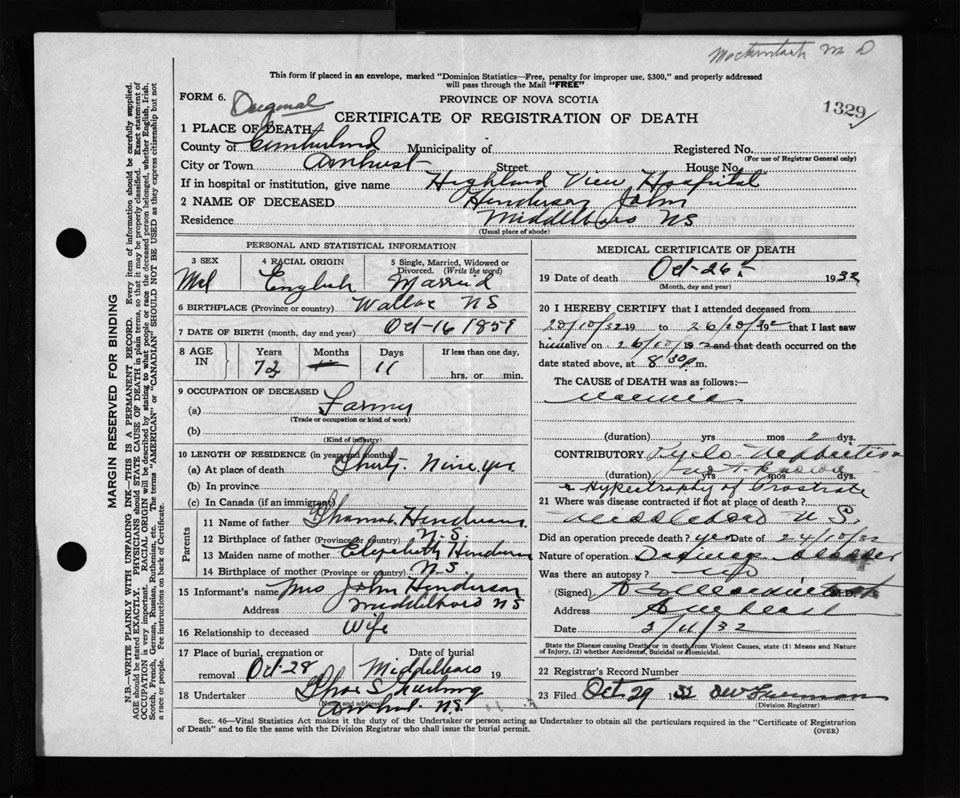 Mackintosh M D
This form if placed in an envelope, marked "Dominion Statistics—Free, penalty for improper use, $300," and properly addressed
will pass through the Mail "FREE"
FORM 6. Original
PROVINCE OF NOVA SCOTIA
1329
CERTIFICATE OF REGISTRATION OF DEATH
1 PLACE OF DEATH
County of Cumberland Municipality of Registered No.
(For use of Registrar General only)
City or Town Amherst Street House No.
If in hospital or institution, give name Highland View Hospital
2 NAME OF DECEASED Henderson John
Residence Middleboro NS
(Usual place of abode)
PERSONAL AND STATISTICAL INFORMATION
3 SEX 4 RACIAL ORIGIN 5 Single, Married, Widowed or
Divorced. (Write the word)
Mal English Married
6 BIRTHPLACE (Province or country) Wallace NS
7 DATE OF BIRTH (month, day and year) Oct-16 1859
8 AGE IN Years Months Days If less than one day,
73 11 hrs. or min.
9 OCCUPATION OF DECEASED
(a) Farmer
(Trade or occupation or kind of work)
(b)
(Kind of industry)
10 LENGTH OF RESIDENCE (in years and months)
(a) At place of death Thirty-Nine yrs
(b) In province
(c) In Canada (if an immigrant)
Parents
11 Name of father Thomas Henderson
12 Birthplace of father (Province or country) N.S.
13 Maiden name of mother Elizabeth Henderson
14 Birthplace of mother (Province or country) N.S.
15 Informant's name Mrs John Henderson
Address Middleboro NS
16 Relationship to deceased Wife
17 Place of burial, cremation or removal Date of burial
Oct-28 Middleboro 19
18 Undertaker Chas S.
(Name and address)
Amherst N.S.
MEDICAL CERTIFICATE OF DEATH
19 Date of death Oct-26 1932
(Month, day and year)
20 I HEREBY CERTIFY that I attended deceased from
20/10/32 19 to 26/10/32 19 that I last saw
him alive on 26/10/32 19 and that death occurred on the
date stated above, at 8 30 p m.
The CAUSE OF DEATH was as follows:—
Uraemia
(duration) yrs mos 2 dys.
CONTRIBUTORY Pyelo-Nephritis
(duration) not known yrs mos dys.
& Hypertrophy of Prostrate
21 Where was disease contracted if not at place of death?
Middleboro N.S.
Did an operation precede death? yes Date of 24/10/32
Nature of operation Drainage Bladder
Was there an autopsy? No
(Signed) M.D.
Address Amherst
Date 2/11/32
State the Disease causing Death or in death from Violent Causes, state (1) Means and Nature
of Injury, (2) whether Accidental, Suicidal or Homicidal.
22 Registrar's Record Number
23 Filed Oct 29 1932
(Division Registrar)
Sec. 46—Vital Statistics Act makes it the duty of the Undertaker or person acting as Undertaker to obtain all the particulars required in the "Certificate of Registration
of Death" and to file the same with the Division Registrar who shall issue the burial permit.
(OVER)
MARGIN RESERVED FOR BINDING
N.B.—WRITE PLAINLY WITH UNFADING INK—THIS IS A PERMANENT RECORD. Every item of information should be carefully supplied.
AGE should be stated EXACTLY. PHYSICIANS should STATE CAUSE OF DEATH in plain terms, so that it may be properly classified. Exact statement of
OCCUPATION is very important. RACIAL ORIGIN will be described by stating to what people or race the deceased person belonged, whether English, Irish,
Scotch, French, German, Russian, Ruthenian, etc. The terms "AMERICAN" or "CANADIAN" SHOULD NOT BE USED as they express citizenship but not
a race or people. Fee instructions on back of Certificate.